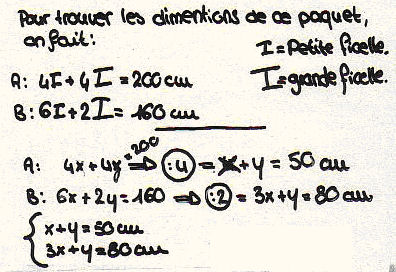 Pour trouver les dimentions de ce paquet,
on fait:
I = Petite ficelle.
I = grande ficelle.
A: 4I + 4I = 200 cm
B: 6I + 2I = 160 cm
A: 4x + 4y = 200 => :4 = x + y = 50 cm
B: 6x + 2y = 160 => :2 = 3x + y = 80 cm
{ x + y = 50 cm
3x + y = 80 cm